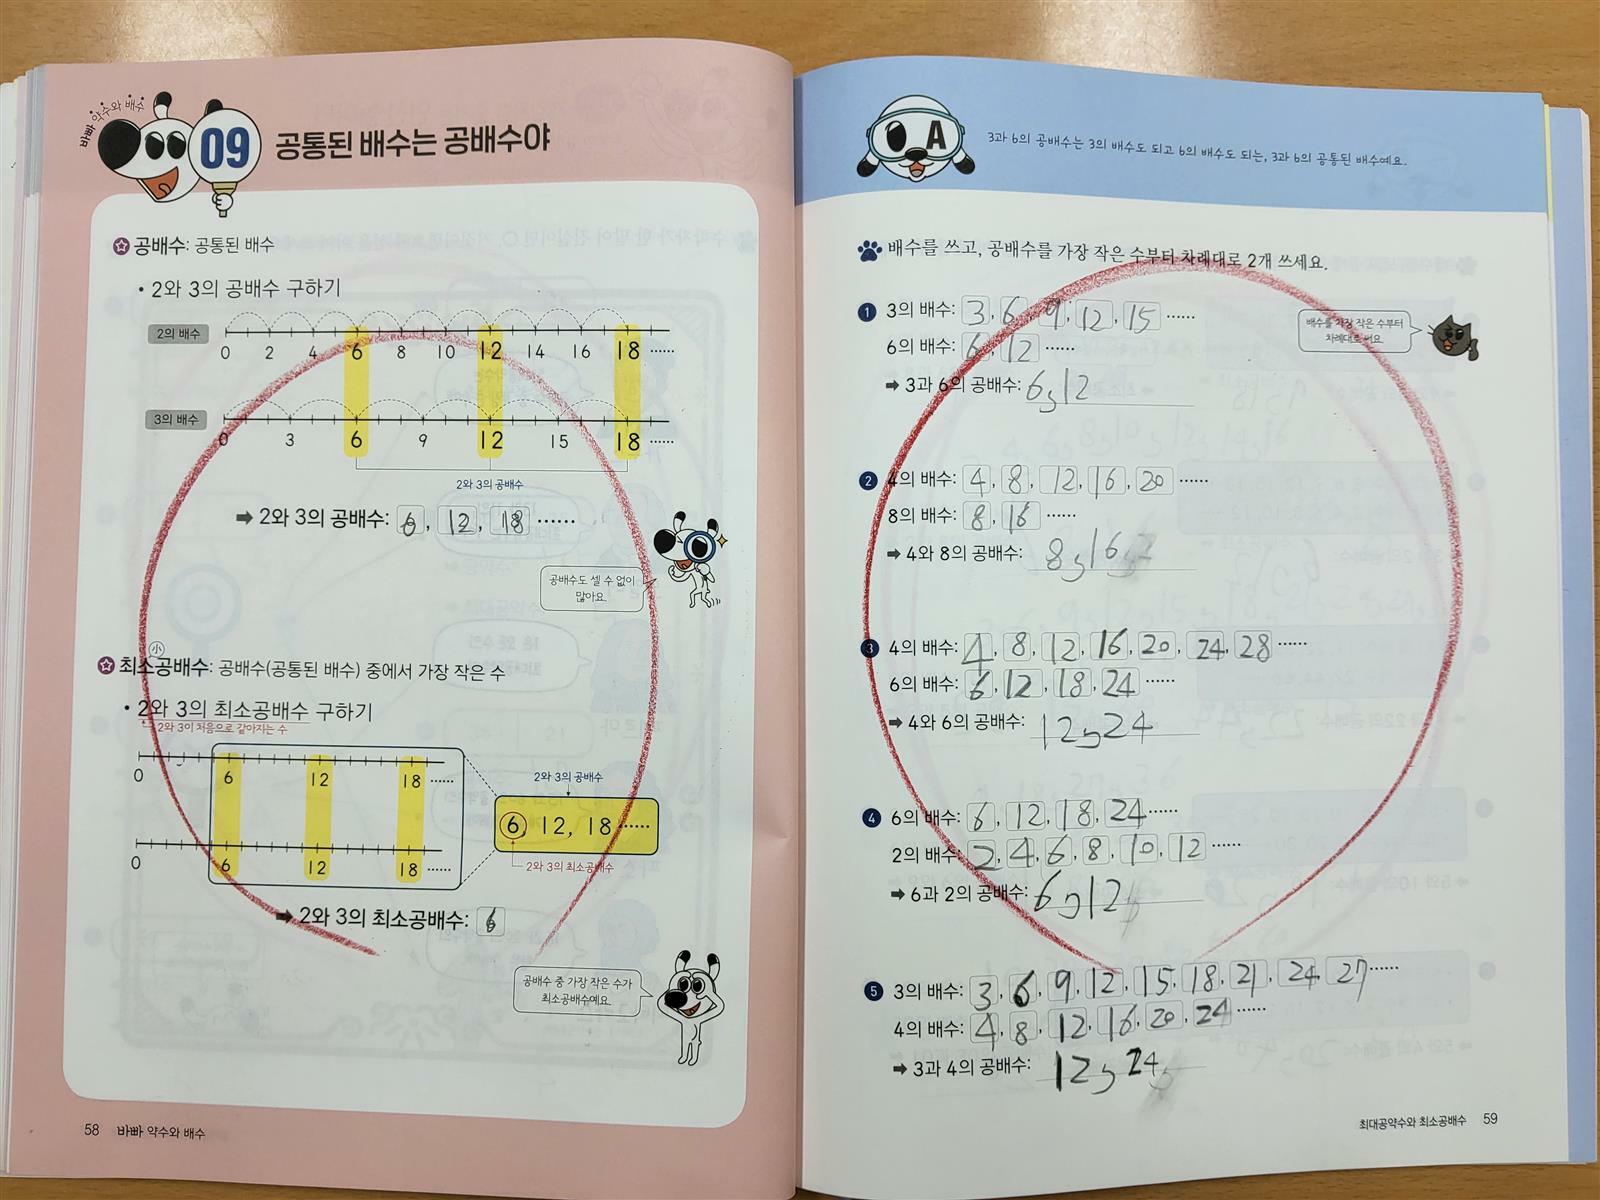 바빠 약수와 배수
09 공통된 배수는 공배수야
공배수: 공통된 배수
• 2와 3의 공배수 구하기
2의 배수
0 2 4 6 8 10 12 14 16 18 ……
3의 배수
0 3 6 9 12 15 18 ……
2와 3의 공배수
➡ 2와 3의 공배수: 6, 12, 18 ……
공배수도 셀 수 없이
많아요.
小
최소공배수: 공배수(공통된 배수) 중에서 가장 작은 수
• 2와 3의 최소공배수 구하기
2와 3이 처음으로 같아지는 수
0 6 12 18 ……
0 6 12 18 ……
2와 3의 공배수
6, 12, 18 ……
2와 3의 최소공배수
➡ 2와 3의 최소공배수: 6
공배수 중 가장 작은 수가
최소공배수예요.
58 바빠 약수와 배수
A
3과 6의 공배수는 3의 배수도 되고 6의 배수도 되는, 3과 6의 공통된 배수예요.
배수를 쓰고, 공배수를 가장 작은 수부터 차례대로 2개 쓰세요.
배수를 가장 작은 수부터
차례대로 써요.
1 3의 배수: 3, 6, 9, 12, 15 ……
6의 배수: 6, 12 ……
➡ 3과 6의 공배수: 6, 12
2 4의 배수: 4, 8, 12, 16, 20 ……
8의 배수: 8, 16 ……
➡ 4와 8의 공배수: 8, 16
3 4의 배수: 4, 8, 12, 16, 20, 24, 28 ……
6의 배수: 6, 12, 18, 24 ……
➡ 4와 6의 공배수: 12, 24
4 6의 배수: 6, 12, 18, 24 ……
2의 배수: 2, 4, 6, 8, 10, 12 ……
➡ 6과 2의 공배수: 6, 12
5 3의 배수: 3, 6, 9, 12, 15, 18, 21, 24, 27 ……
4의 배수: 4, 8, 12, 16, 20, 24 ……
➡ 3과 4의 공배수: 12, 24
최대공약수와 최소공배수 59